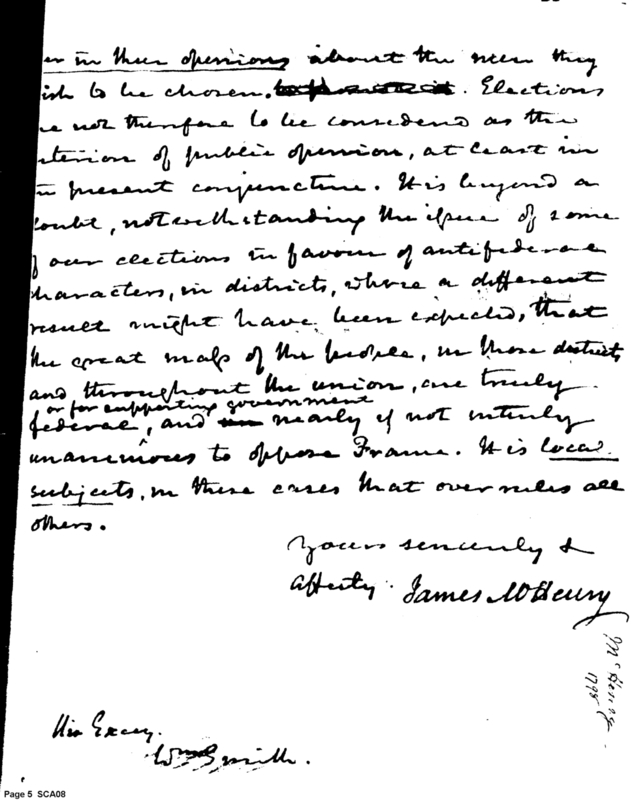 er in their opinions about the men they
ish to be chosen. . Elections
re not therefore to be considered as the
iterion of public opinion, at least in
e present conjuncture. It is beyond a
doubt, notwithstanding the issue of some
of our elections in favour of antifederal
characters, in districts, where a different
result might have been expected, that
the great mass of the people, in those districts
and throughout the union, are truly
or for supporting government
federal, and nearly if not intirely
unanimous to oppose France. It is local
subjects, in these cases that over rules all
others.
Yours sincerely &
affecty. James McHenry
McHenry
1798
His Excey.
Wm Smith.
Page 5 SCA08